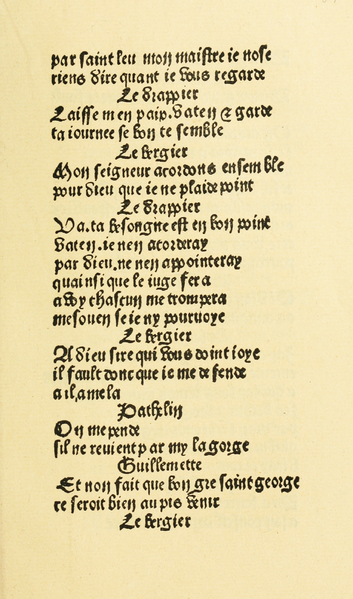 par saint leu mon maistre ie nose
riens dire quant ie vous regarde
Le drappier
Laisse men paix. vaten & garde
ta iournee se bon te semble
Le bergier
Mon seigneur acordons ensemble
pour dieu que ie ne plaide point
Le drappier
Va. ta besongne est en bon point
vaten. ie nen acorderay
par dieu. ne nen appointeray
quainsi que le iuge fera
a voy chascun me trompera
mesouen se ie ny pouruoye
Le bergier
A dieu sire qui vous doint ioye
il fault donc que ie me defende
a il. ame la
Pathelin
On me pende
sil ne reuient par my la gorge
Guillemette
Et non fait que bon gre saint george
ce seroit bien au pis venir
Le bergier